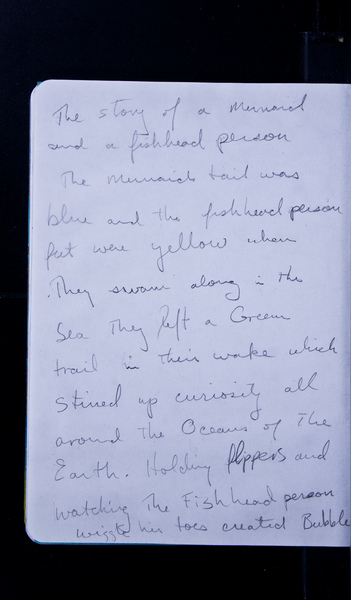 The story of a Mermaid
and a fishhead person
The Mermaids tail was
blue and the fishhead person
feet were yellow when
They swam along in the
Sea They left a Green
trail in their wake which
Stirred up curiosity all
around The Oceans of The
Earth. Holding flippers and
watching The Fishhead person
wiggle her toes created Bubble